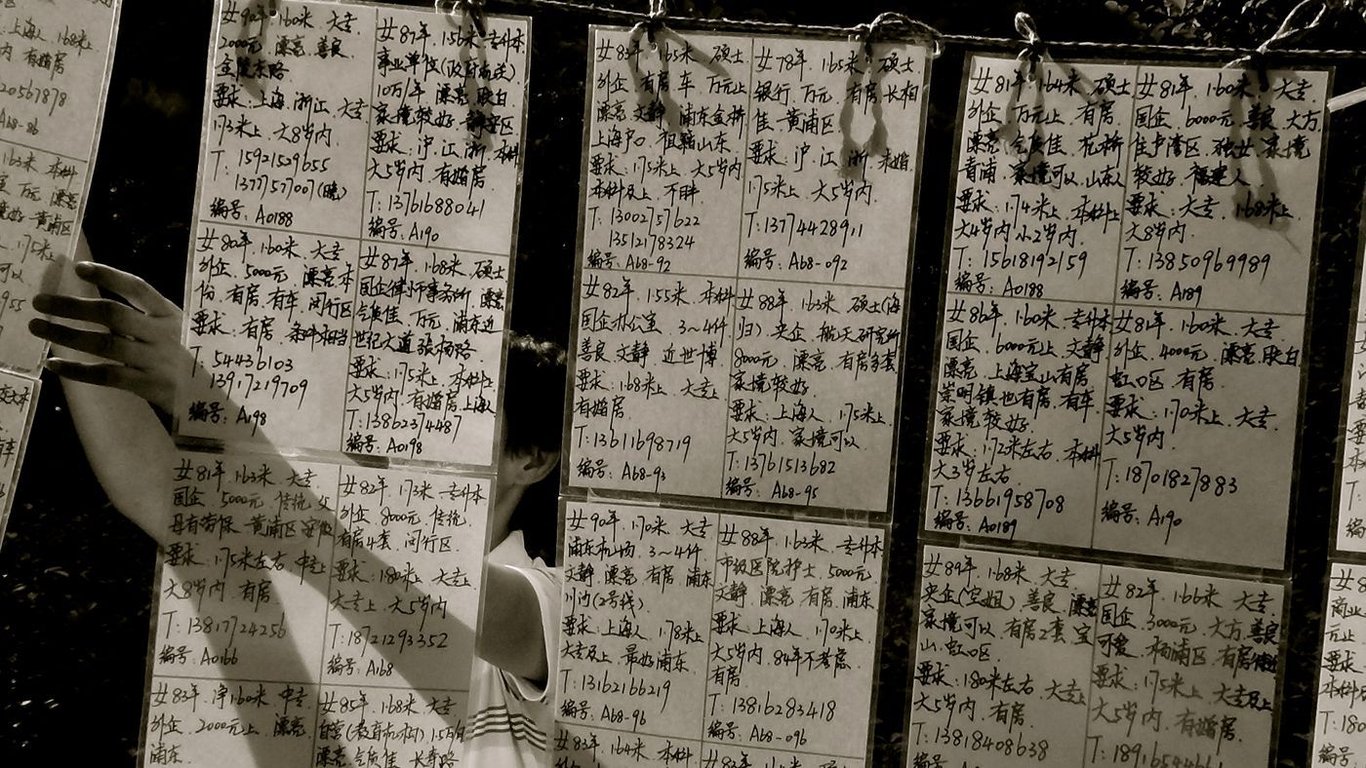 上海人 168米上
内 有婚房
20567878
A68-86
163米 本科
女90年 160米 大专
2000元 漂亮 善良
金陵东路
要求:上海.浙江.大专
173米上.大8岁内
T:15921529655
编号:A0188
女87年.156米.专升本
事业单位
10万/年 漂亮 肤白
家境较好.静安区
要求:沪.江.浙.本科
大5岁内.有婚房
T:13761688041
编号:A190
女80年.160米.大专
外企.5000元.漂亮.本
份.有房.有车.闵行区
要求:有房.条件相当
T:54436103
13917219709
编号:A198
女87年.168米.硕士
国企律师事务所.漂亮
气质佳.万元.浦东近
世纪大道张杨路
要求:175米上.本科上
大5岁内.有婚房.上海人
T:13862374487
编号:A0198
女81年.163米.大专
国企.5000元.传统.父
母有劳保.黄浦区
要求:175米左右.中专上
大8岁内.有房
T:13817724256
编号:A0166
女82年.173米.专升本
外企.8000元.传统.
有房4套.闵行区.
要求:180米上.大专
大专上.大5岁内.
T:18721293352
编号:A168
女83年.净160米.中专.
外企.2000元上.漂亮.
浦东.
女85年.168米.大专
自营(教育机构)1.5万
漂亮.气质佳.长寿路
女83年.165米.硕士
外企.有房.车.万元上
漂亮.文静.浦东金桥
上海户口.祖籍山东
要求:175米上.大5岁内
本科及上.不胖
T:13002757622
13512178324
编号:A68-92
女78年.165米.硕士
银行.万元.有房.长相
佳.黄浦区
要求:沪.江.浙.未婚
175米上.大5岁内.
T:13774428911
编号:A68-092
女82年.155米.本科
国企办公室.3~4仟
善良.文静.近世博
要求:168米上.大专上
有婚房
T:13611698719
编号:A68-93
女88年.163米.硕士(海
归).央企.航天研究所
8000元.漂亮.有房多套
家境较好
要求:上海人.175米上.
大5岁内.家境可以
T:13761513682
编号:A68-95
女90年.170米.大专
浦东机场.3~4仟
文静.漂亮.有房.浦东
川沙(2号线)
要求:上海人.178米上
大专及上.最好浦东
T:13162166219
编号:A68-96
女88年.163米.专升本
甲级医院护士.5000元
文静.漂亮.有房.浦东
要求:上海人.170米上
大5岁内.84年不考虑
有房
T:13816283418
编号:A68-096
女83年.164米.本科
女81年.164米.硕士
外企.万元上.有房.
漂亮.气质佳.花桥
青浦.家境可以.山东人
要求:174米上.本科上
大4岁内小2岁内.
T:15618192159
编号:A0188
女81年.160米.大专.
国企.6000元.善良.大方.
住卢湾区.独女.家境
较好.福建人
要求:大专.168米上.
大8岁内.
T:13850969989
编号:A189
女86年.160米.专升本
国企.6000元上.文静
漂亮.上海宝山有房
崇明镇也有房.有车
家境较好.
要求:172米左右.本科
大3岁左右
T:13661958708
编号:A0189
女81年.160米.大专.
外企.4000元.漂亮.肤白
虹口区.有房.
要求:170米上.大专.
大5岁内.
T:18701827883
编号:A190
女89年.168米.大专
央企(空姐).善良.漂亮
家境可以.有房2套.宝
山.虹口区
要求:180米左右.大专上
大5岁内.有房.
T:13818408638
编号:
女82年.166米.大专.
国企.3000元.大方.善良
可爱.杨浦区.有房
要求:175米上.大专及上
大5岁内.有婚房.